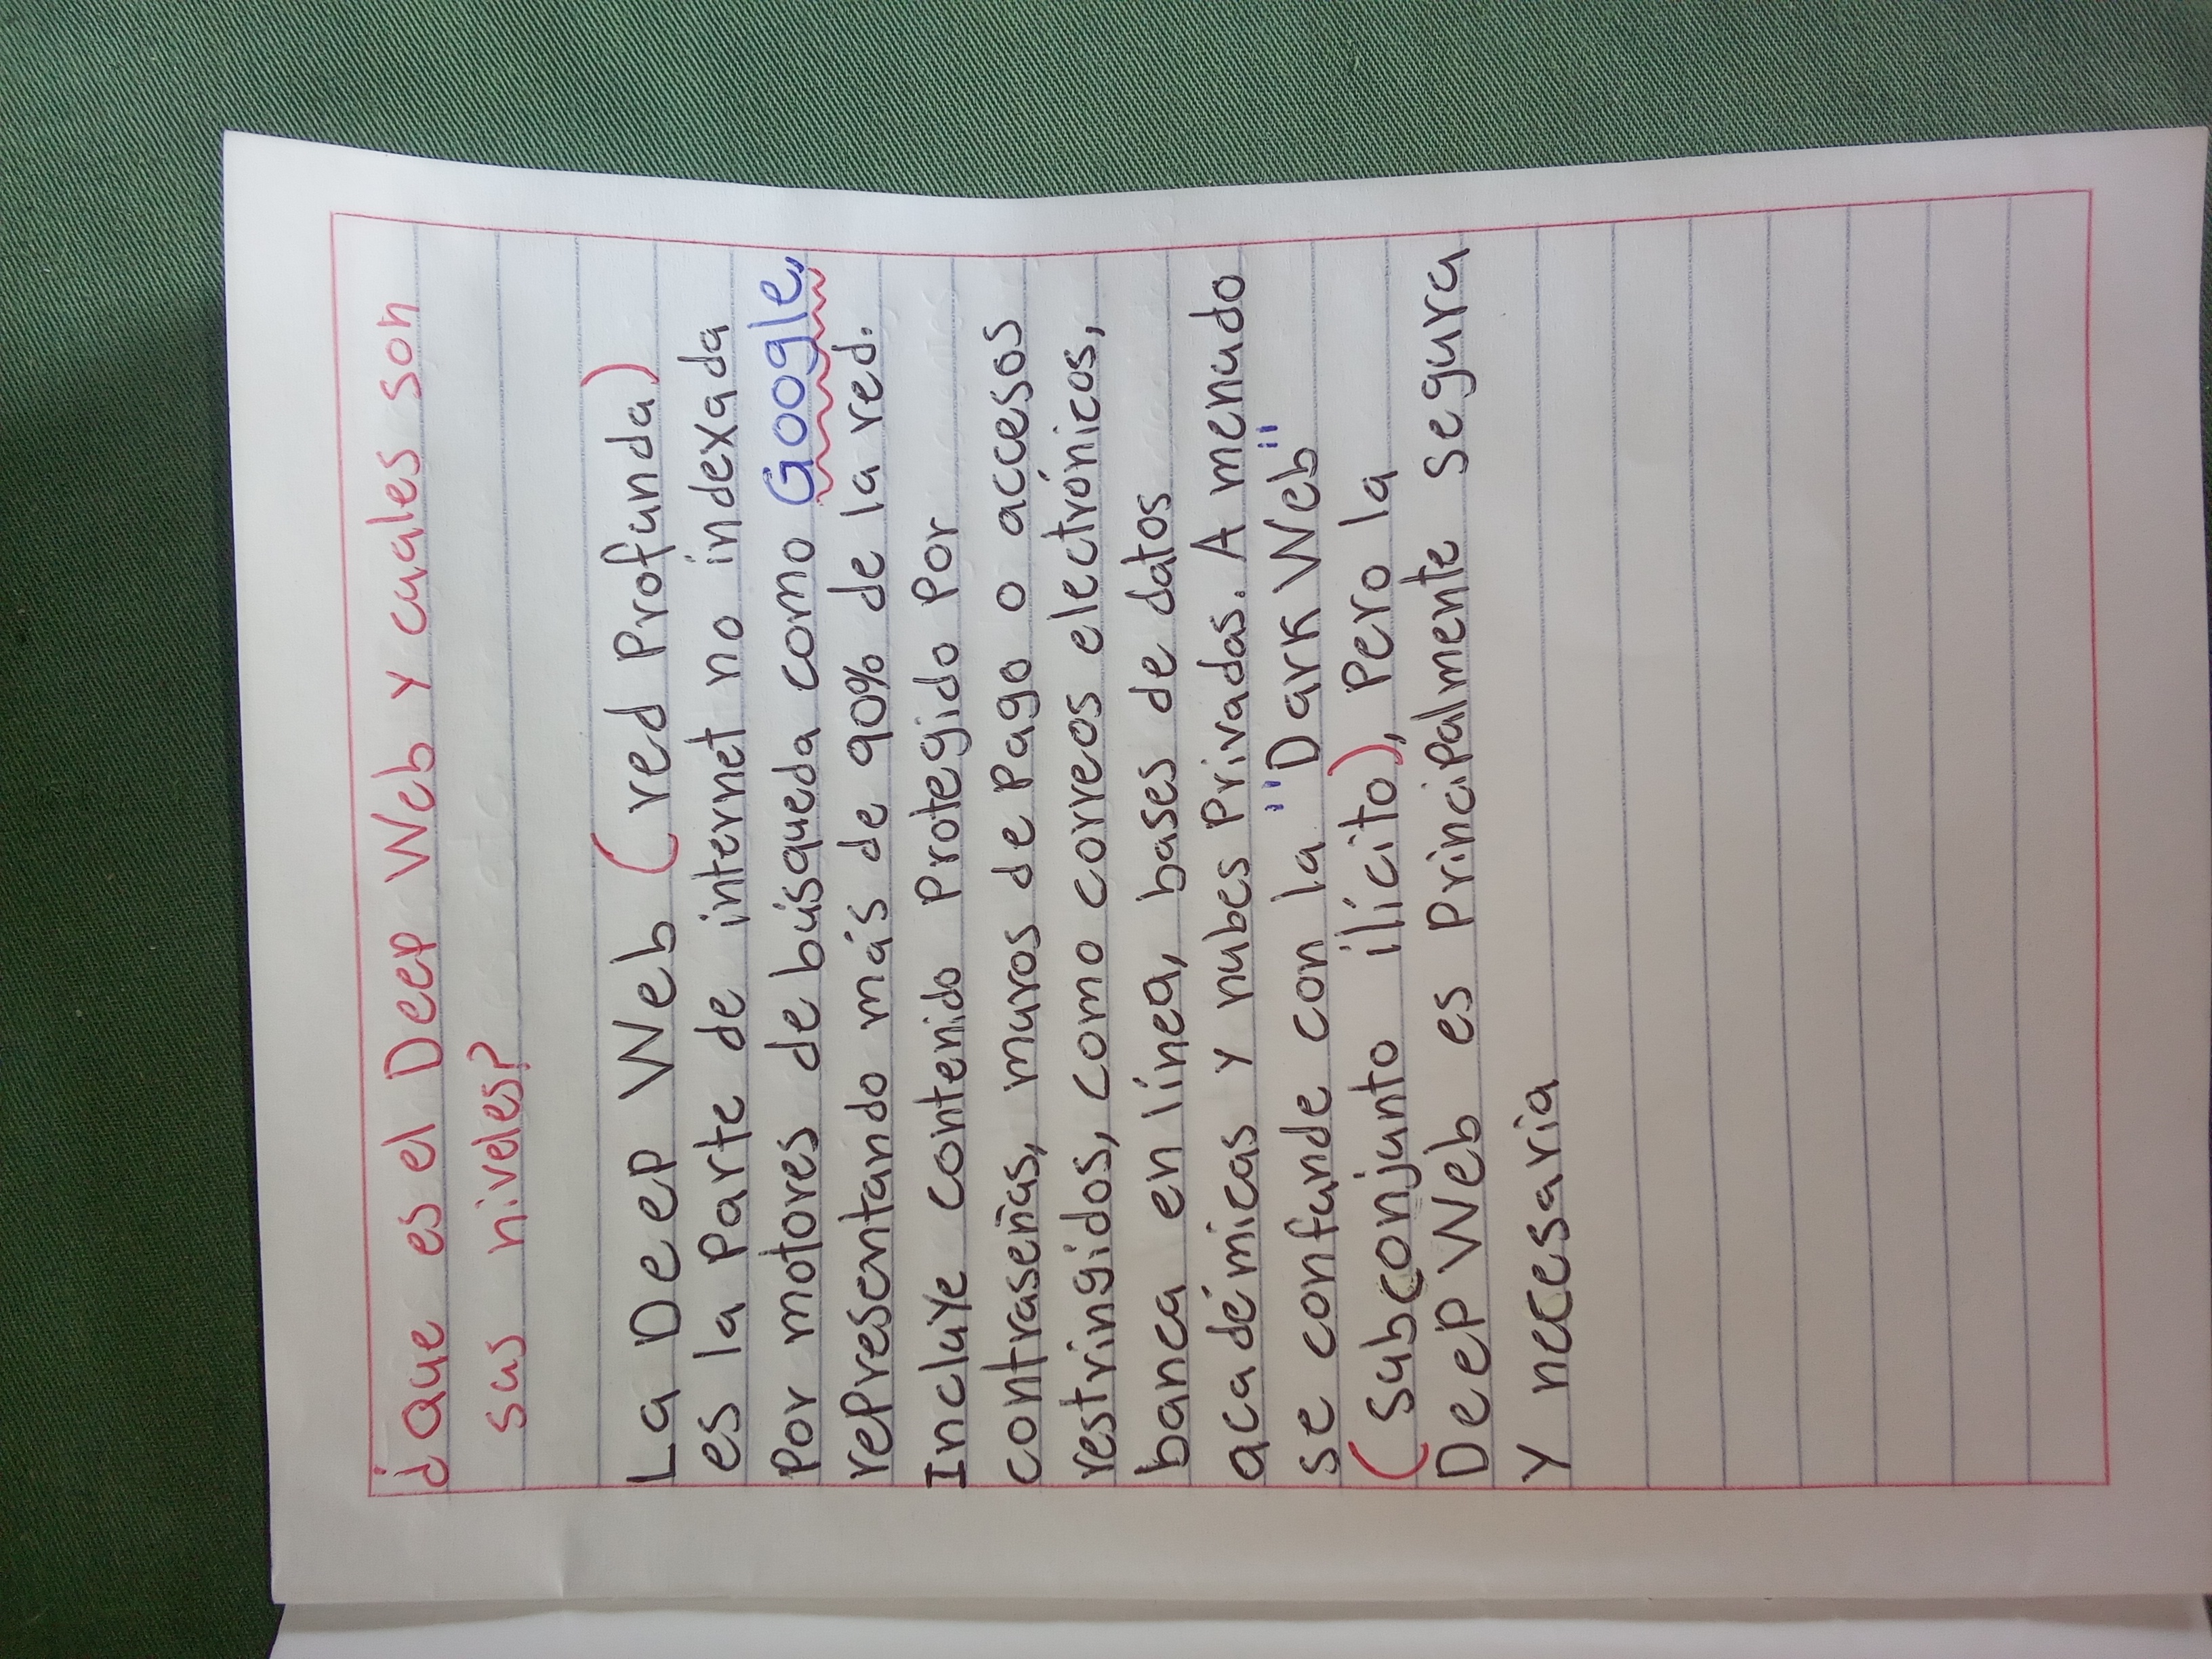 ¿Que es el Deep Web y cuales son
sus niveles?
La Deep Web (red Profunda)
es la Parte de internet no indexada
Por motores de búsqueda como Google,
representando más de 90% de la red.
Incluye contenido Protegido Por
contraseñas, muros de Pago o accesos
restringidos, como correos electrónicos,
banca en línea, bases de datos
académicas y nubes Privadas. A menudo
se confunde con la "Dark Web"
(subconjunto ilícito), Pero la
Deep Web es Principalmente segura
Y necesaria